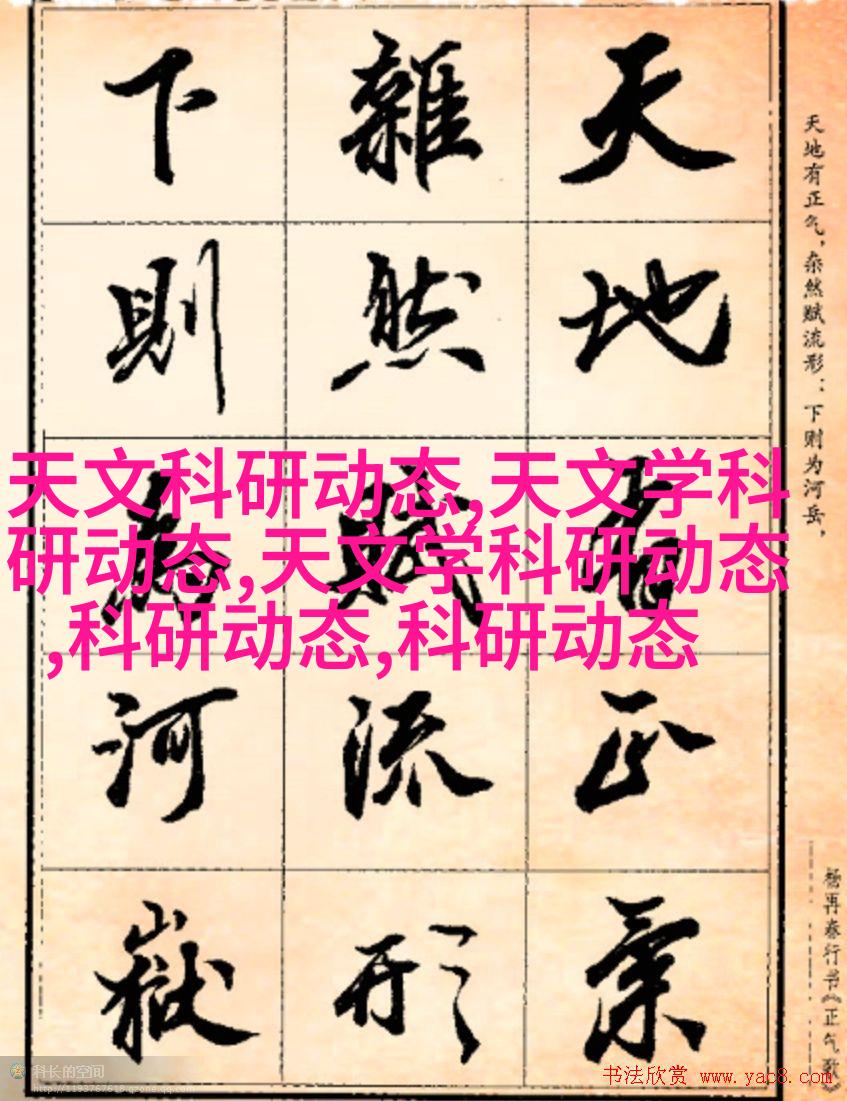 天地有正氣
雜然賦流形
下則為河嶽
天地有正气，杂然赋流形：下则为河岳，
杨再春行书《正气歌》
天文科研动态,天文学科
研动态,天文学科研动态
,科研动态,科研动态
科长的空间
http://1193767618.qzone.qq.com
书法欣赏 www.yac8.com